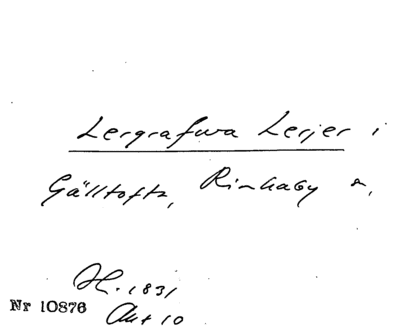 Lergrafwa Lerjer i
Gälltofta, Rinkaby s.
H. 1831
Nr 10876 Akt 10